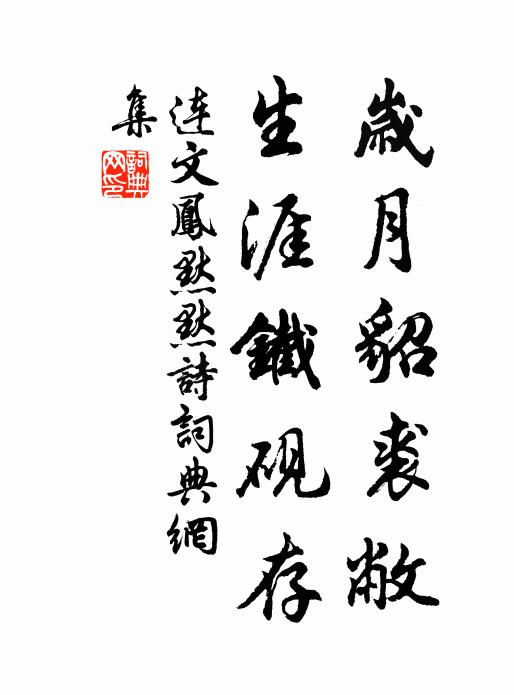 歲月貂裘敝
生涯鐵硯存
連文鳳默默詩詞典網
集
詞典網印